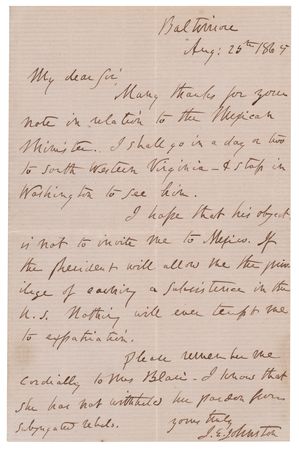 Baltimore
Aug: 25th 1865
My dear Sir
Many thanks for your
note in relation to the Mexican
Minister. I shall go in a day or two
to South Western Virginia - & stop in
Washington to see him.
I hope that his object
is not to invite me to Mexico. If
the President will allow me the priv-
ilege of earning a subsistence in the
U.S. nothing will ever tempt me
to expatriation.
Please remember me
cordially to Mrs Blair - I know that
she has not withheld her pardon from
subjugated rebels.
yours truly
J.E. Johnston